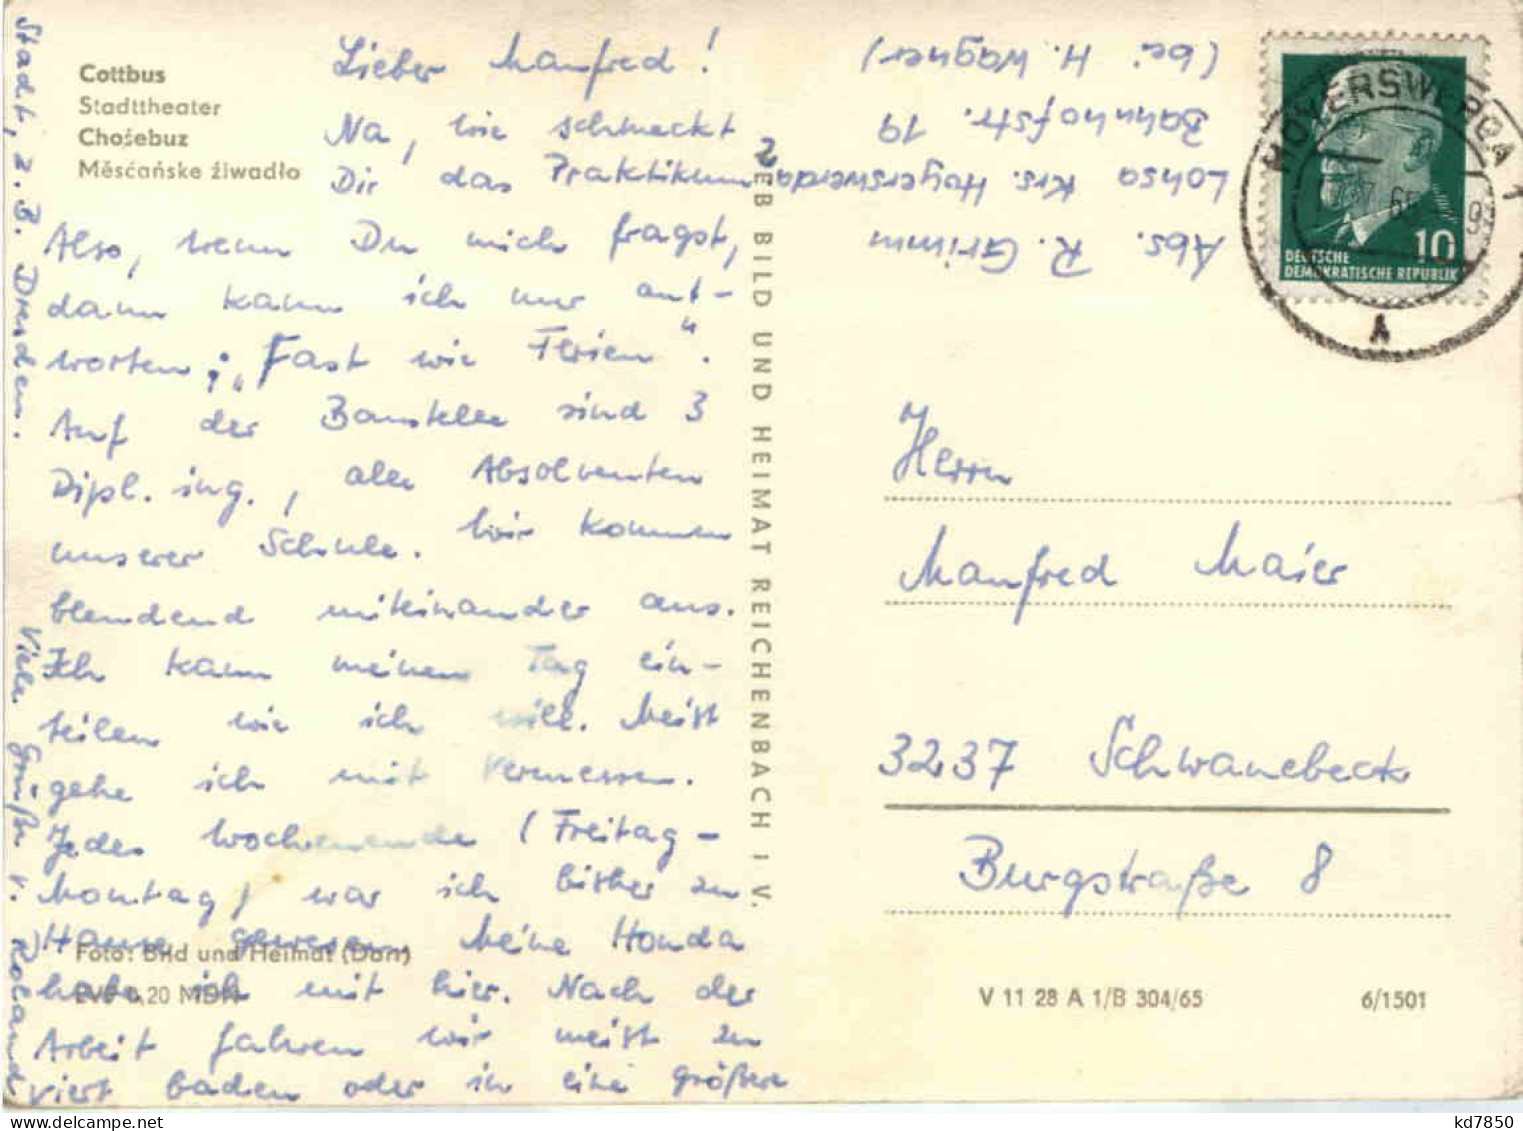 Cottbus
Stadttheater
Chośebuz
Měsćańske źiwadło
Lieber Manfred!
Na, wie schmeckt
Dir das Praktikum?
Also, wenn Du mich fragst,
dann kann ich nur ant-
worten: „Fast wie Ferien“.
Auf der Baustelle sind 3
Dipl. ing., alle Absolventen
unserer Schule. Wir kommen
blendend miteinander aus.
Ich kann meinen Tag ein-
teilen wie ich will. Meist
gehe ich mit vermessen.
Jedes Wochenende (Freitag-
Montag) war ich bisher zu
Hause gewesen. Meine Honda
habe ich mit hier. Nach der
Arbeit fahren wir meist zu
viert baden oder in eine größere
Stadt, z.B. Dresden.
Viele Grüße v. Roland
Foto: Bild und Heimat (Darr)
EVP 0,20 MDN
VEB BILD UND HEIMAT REICHENBACH I V.
Abs. R. Grimm
Lohsa Krs. Hoyerswerda
Bahnhofstr. 19
(bei H. Wagner)
HOYERSWERDA 1
10
DEUTSCHE
DEMOKRATISCHE REPUBLIK
Herrn
Manfred Maier
3237 Schwanebeck
Burgstraße 8
V 11 28 A 1/B 304/65
6/1501
kd7850